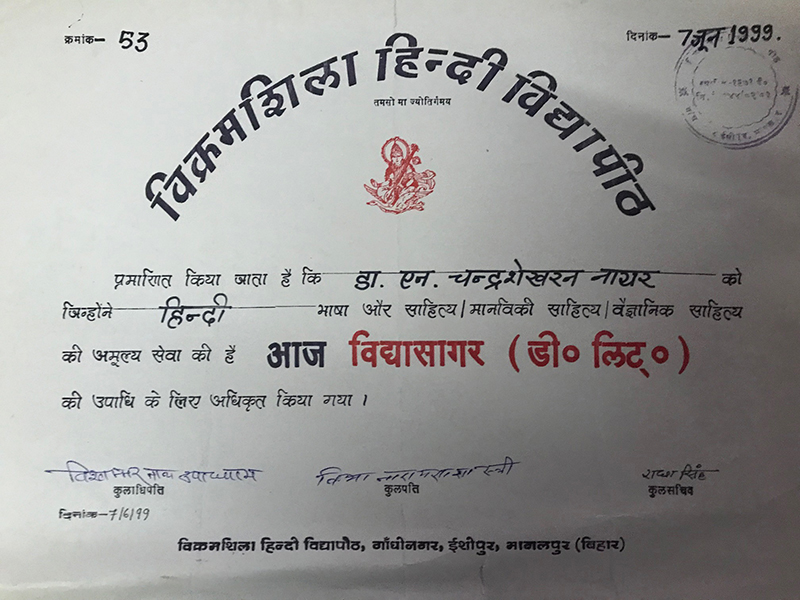 क्रमांक— 53
दिनांक— 7 जून 1999.
विक्रमशिला हिन्दी विद्यापीठ
तमसो मा ज्योतिर्गमय
प्रमाणित किया जाता है कि डा. एन. चन्द्रशेखरन नायर को
जिन्होंने हिन्दी भाषा और साहित्य/मानविकी साहित्य/वैज्ञानिक साहित्य
की अमूल्य सेवा की है आज विद्यासागर (डी० लिट्०)
की उपाधि के लिए अधिकृत किया गया ।
कुलाधिपति
कुलपति
राधा सिंह
कुलसचिव
दिनांक—7/6/99
विक्रमशिला हिन्दी विद्यापीठ, गाँधीनगर, ईशीपुर, भागलपुर (बिहार)